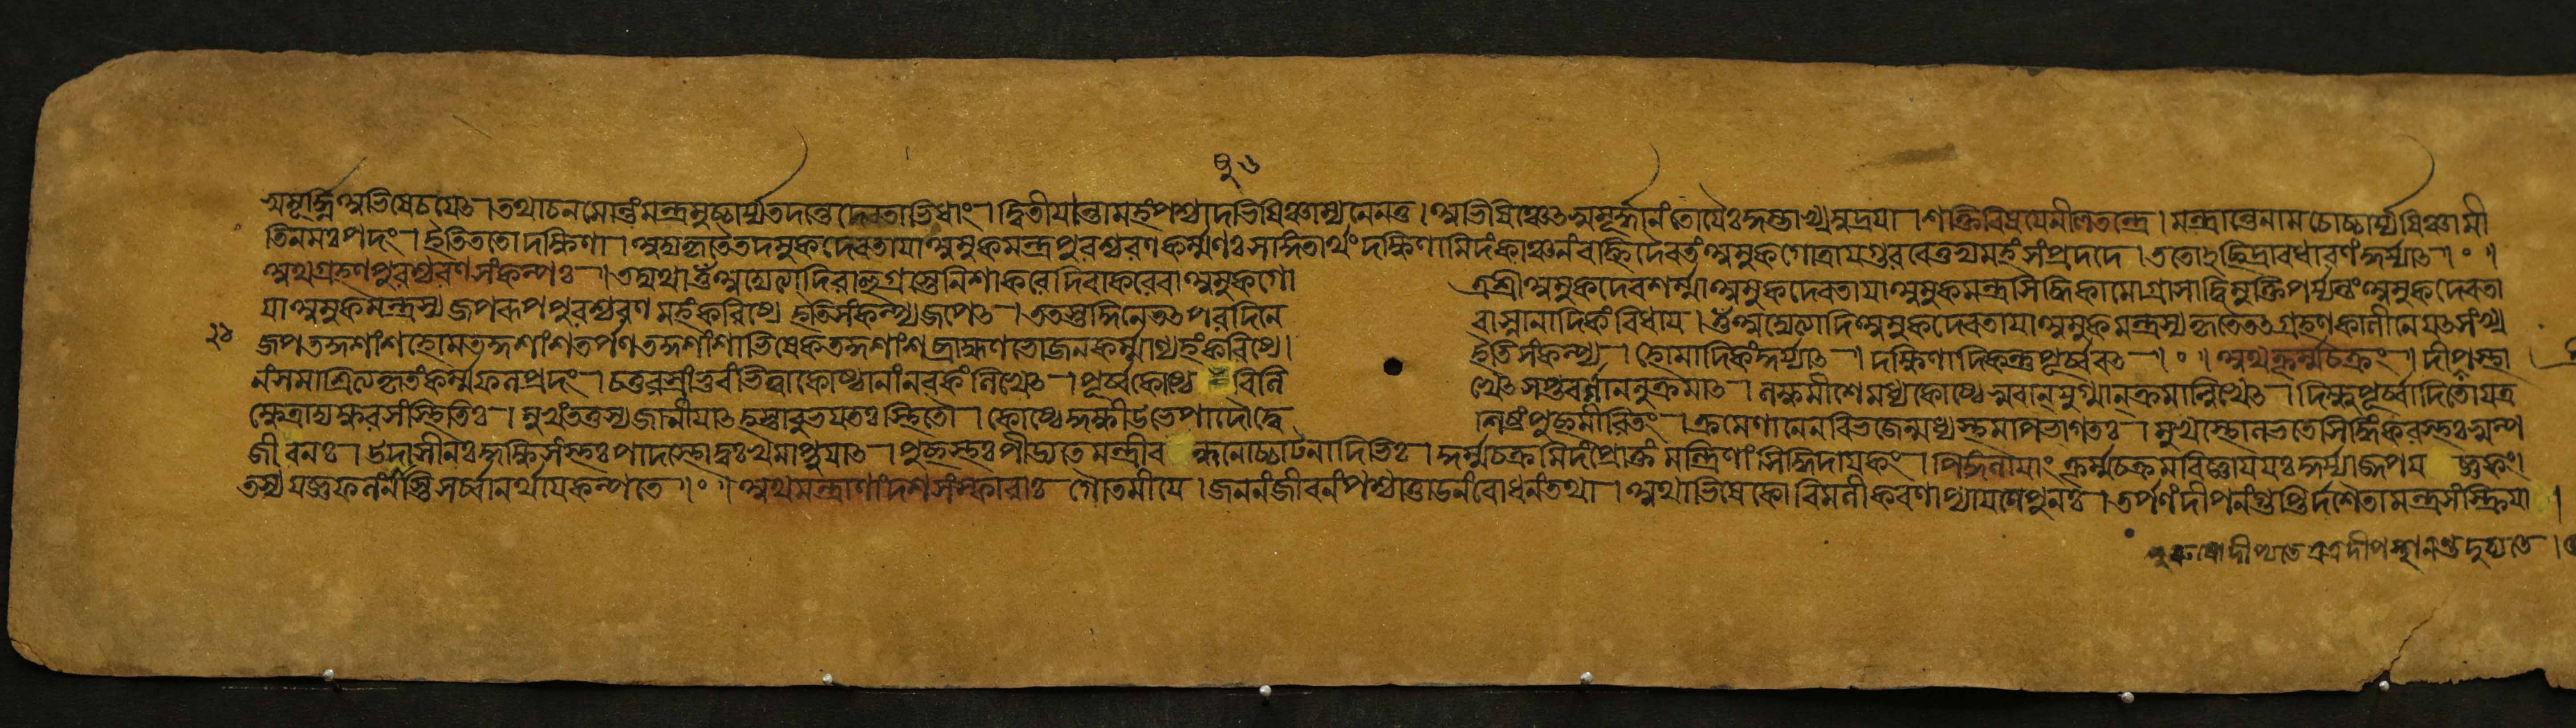 স্বমূর্দ্ধ্নি অভিষেচয়েৎ । তথাচ নমোন্তং মন্ত্রমুচ্চার্য্য তদন্তে দেবতাভিধাং । দ্বিতীয়ান্তামহং পশ্চাদভিষিঞ্চাম্যনেন তু । অভিষিঞ্চেৎ স্বমূর্দ্ধানং তোয়ৈঃ কুম্ভাখ্যমুদ্রয়া । শক্তিবিষয়ে নীলতন্ত্রে । মন্ত্রান্তে নাম চোচ্চার্য্য সিঞ্চামী
তি নমঃ পদং । ইতি ততো দক্ষিণা । অদ্যকৃতৈতদমুকদেবতায়া অমুকমন্ত্রপুরশ্চরণকর্ম্মণঃ সাঙ্গতার্থং দক্ষিণামিদং কাঞ্চনং বহ্নিদৈবতং অমুকগোত্রায় গুরবে তুভ্যমহং সংপ্রদদে । ততোঽচ্ছিদ্রাবধারণং কুর্য্যাৎ । ० ।
অথ গ্রহণপুরশ্চরণসংকল্পঃ । তদ্যথা ওঁ অদ্যেত্যাদি রাহুগ্রস্তে নিশাকরে দিবাকরে বা অমুকগো
ত্র শ্রীঅমুকদেবশর্ম্মা অমুকদেবতায়া অমুকমন্ত্রসিদ্ধিকামো গ্রাসাদ্বিমুক্তিপর্য্যন্তং অমুকদেবতা
য়া অমুকমন্ত্রস্য জপরূপপুরশ্চরণমহং করিষ্যে ইতি সংকল্প্য জপেৎ । ততস্তদ্দিনে তৎপরদিনে
বা স্নানাদিকং বিধায় । ওঁ অদ্যেত্যাদি অমুকদেবতায়া অমুকমন্ত্রস্য কৃতৈতৎ গ্রহণকালীনেয়ৎসংখ্য
জপতদ্দশাংশহোমতদ্দশাংশতর্পণতদ্দশাংশাভিষেকতদ্দশাংশব্রাহ্মণভোজনকর্ম্মাণ্যহং করিষ্যে ।
ইতি সংকল্প্য । হোমাদিকং কুর্য্যাৎ । দক্ষিণাদিকন্তু পূর্ব্ববৎ । ० । অথ কূর্ম্মচক্রং । দীপস্থা
নং সমাশ্রিত্য কৃতং কর্ম্ম ফলপ্রদং । চতুরস্রাং ভুবং ভিত্বা কোষ্ঠানাং নবকং লিখেৎ । পূর্ব্বকোষ্ঠ বিলি
খেৎ সপ্তবর্গাননুক্রমাৎ । লক্ষমীশে মধ্যকোষ্ঠে স্বরান্ যুগ্মান্ ক্রমাল্লিখেৎ । দিক্ষু পূর্ব্বাদিতো যত্র
ক্ষেত্রাদ্যক্ষরসংস্থিতিঃ । মুখং তত্তস্য জানীয়াৎ হস্তাবুভয়তঃ স্থিতৌ । কোষ্ঠে কুক্ষী উভে পাদৌ দ্বে
শিষ্টং পুচ্ছমীরিতং । ক্রমেণানেন বিভজেন্মধ্যস্থমপি ভাগতঃ । মুখস্থো লভতে সিদ্ধিং করস্থঃ স্বল্প
জীবনঃ । উদাসীনঃ কুক্ষিসংস্থঃ পাদস্থো দুঃখমাপ্নুয়াৎ । পুচ্ছস্থঃ পীড্যতে মন্ত্রী ব ন্ধনোচ্চাটনাদিভিঃ । কূর্ম্মচক্রমিদং প্রোক্তং মন্ত্রিণাং সিদ্ধিদায়কং । পিঙ্গলায়াং কূর্ম্মচক্রমবিজ্ঞায় যঃ কুর্য্যাজ্জপয জ্ঞকং ।
তস্য যজ্ঞফলং নাস্তি সর্ব্বানর্থায় কল্পতে । ० । অথ মন্ত্রাণাং দশসংস্কারাঃ গৌতমীয়ে । জননং জীবনং পশ্চাত্তাডনং বোধনং তথা । অথাভিষেকো বিমলীকরণাপ্যায়নে পুনঃ । তর্পণং দীপনং গুপ্তির্দশৈতা মন্ত্রসংস্ক্রিয়া ।